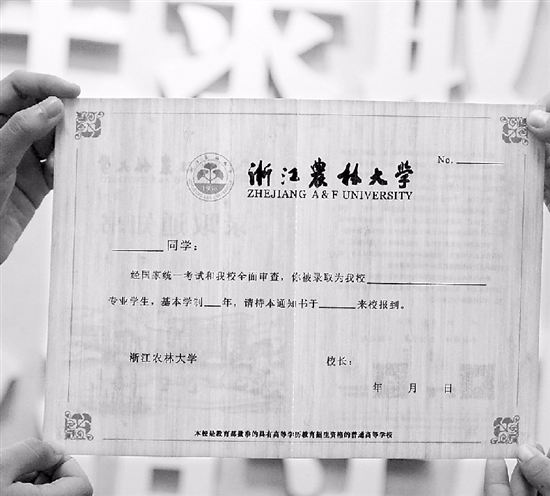 No.
浙江农林大学
ZHEJIANG A & F UNIVERSITY
同学:
经国家统一考试和我校全面审查,你被录取为我校
专业学生,基本学制 年,请持本通知书于 来校报到。
浙江农林大学 校长:
年 月 日
本校是教育部批准的具有高等学历教育招生资格的普通高等学校